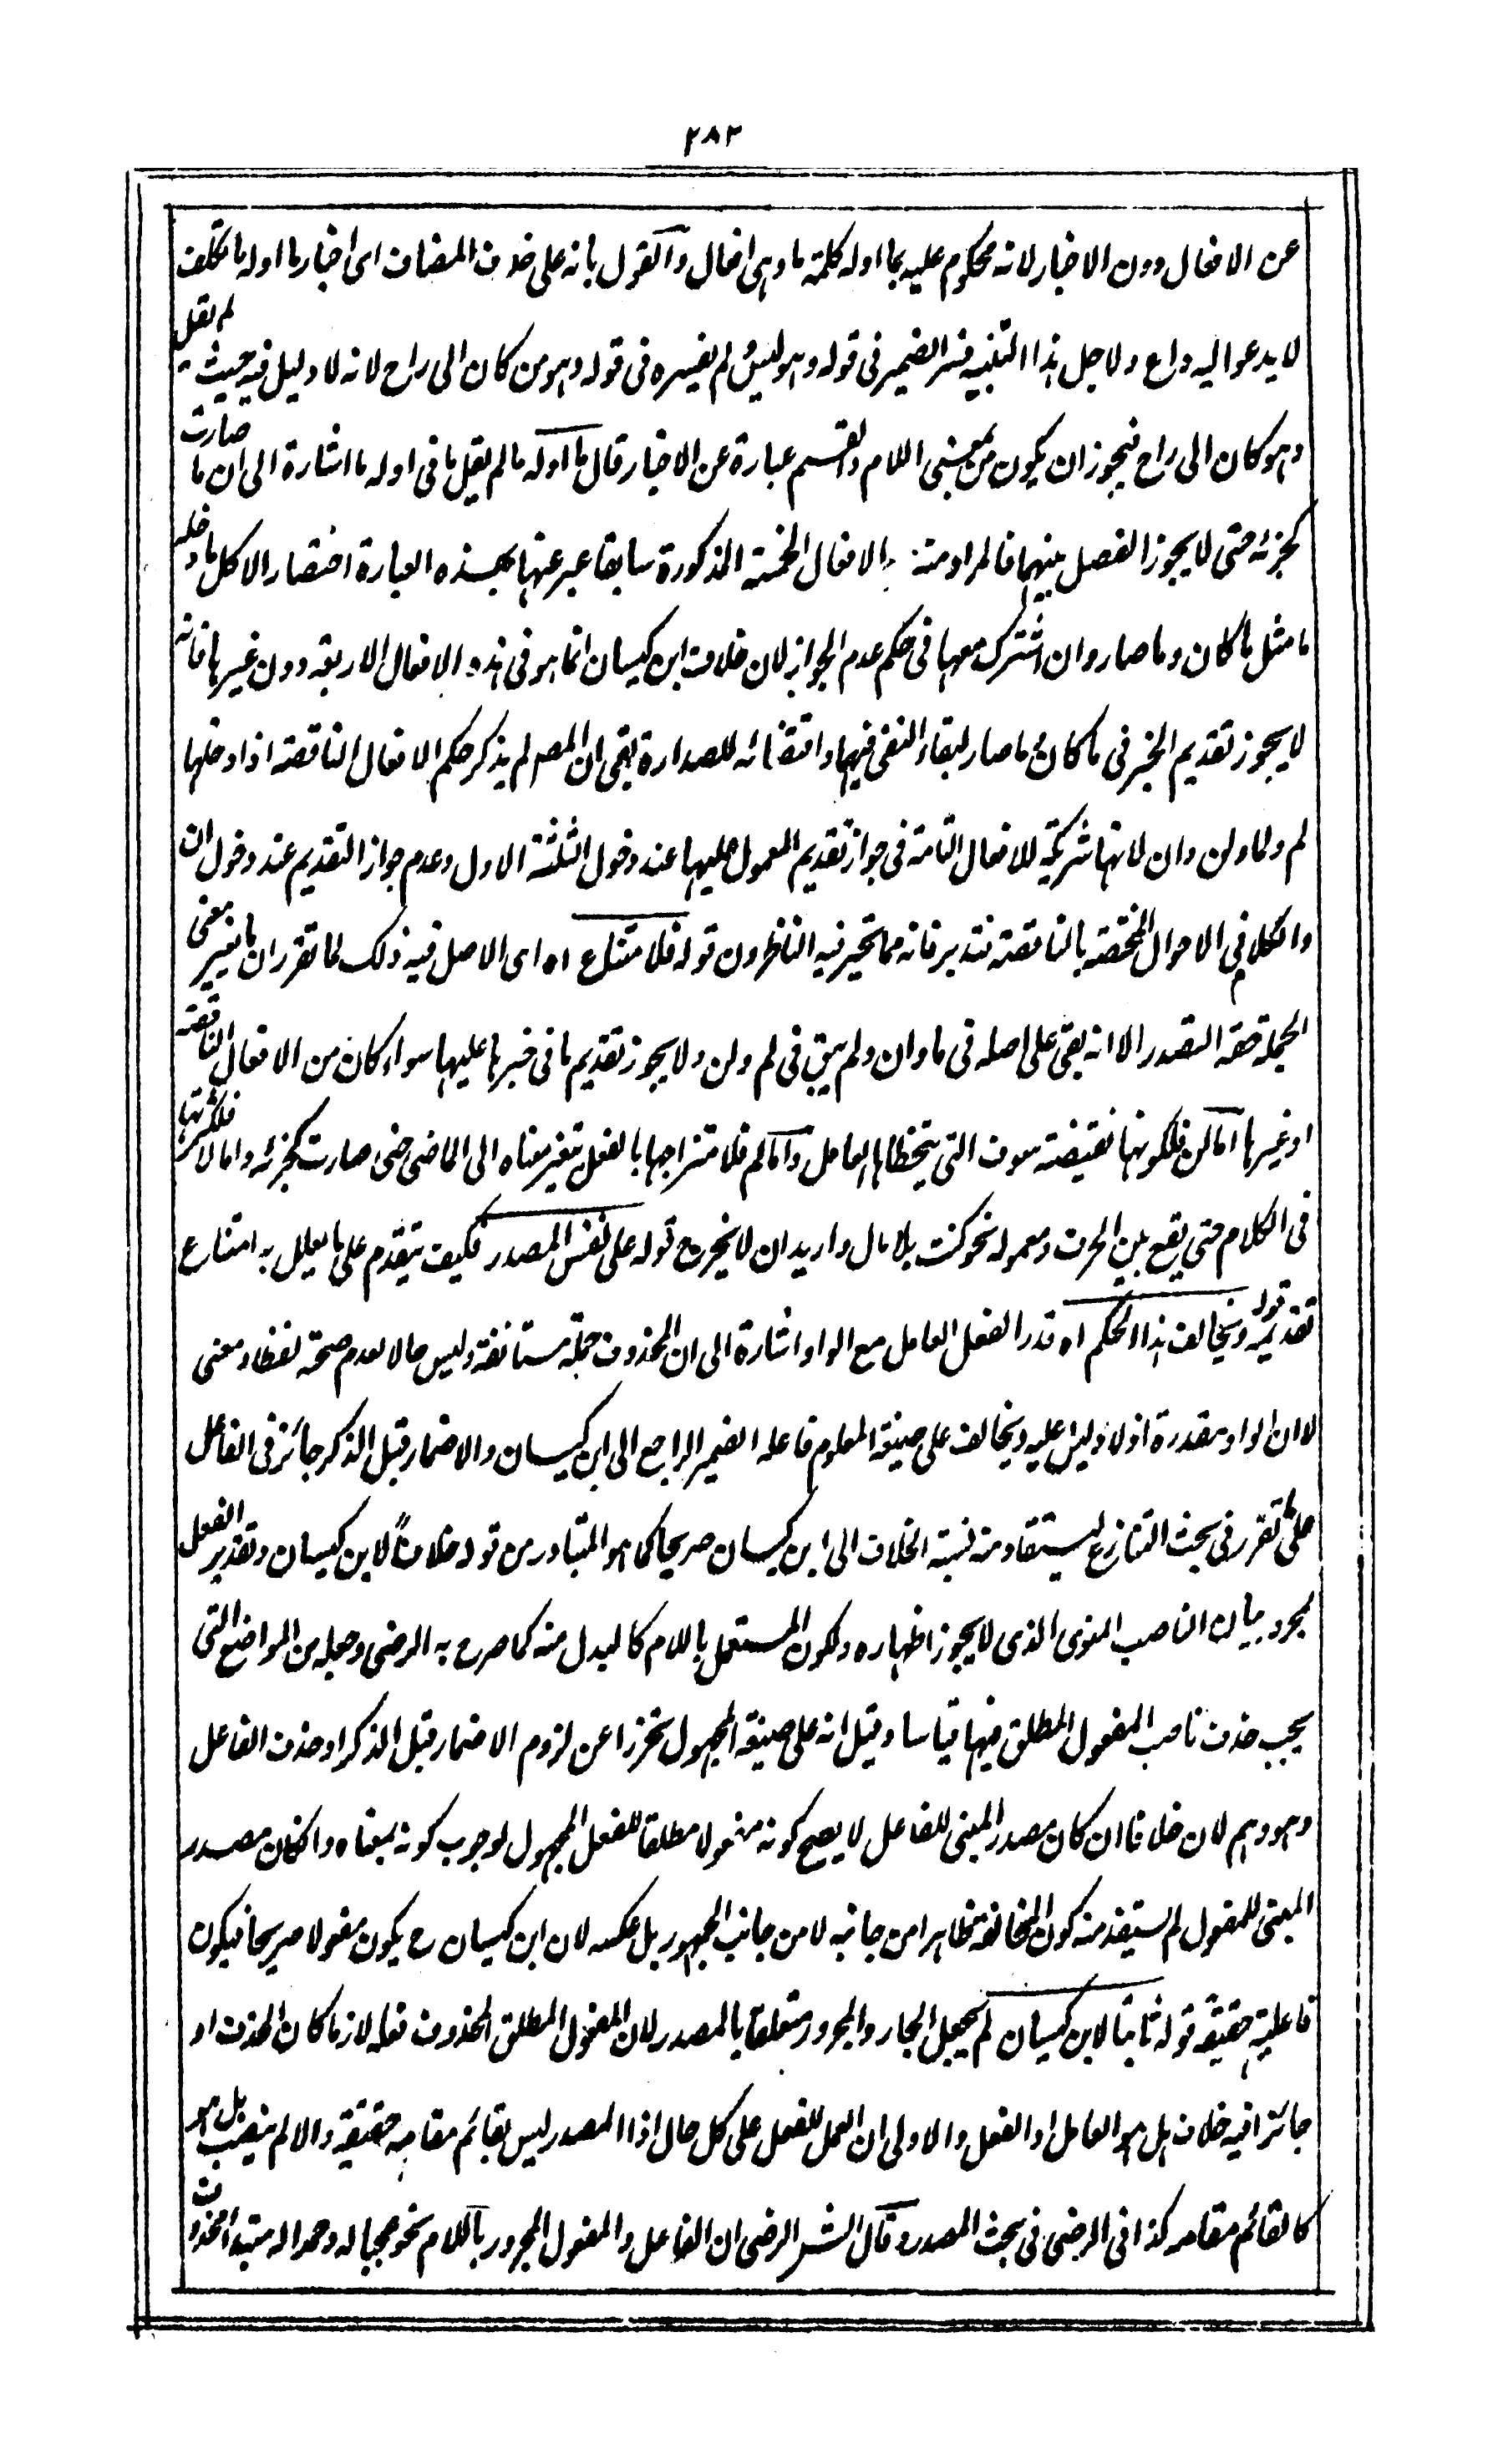 ٢٨٣
عن الافعال دون الاخبار لانه محكوم عليه بما اوله كلمة ما وهى افعال والقول بانه على حذف المضاف اى اخبار ما اوله ما تكلف
لا يدعو اليه داع ولاجل هذا التنبيه فسر الضمير فى قوله وهو ليس ولم يفسره فى قوله وهو من كان الى راح لانه لا دليل فيه حيث لم يقل
وهو كان الى راح فيجوز ان يكون من بمعنى اللام والقسم عبارة عن الاخبار قال ما اوله ما لم يقل ما فى اوله ما اشارة الى ان ما صارت
كجزئه حتى لا يجوز الفصل بينهما فالمراد منه الافعال الخمسة المذكورة سابقا عبر عنها بهذه العبارة اختصارا لا كل ما دخله
ما مثل ما كان وما صار وان اشترك معها فى حكم عدم الجواز لان خلاف ابن كيسان انما هو فى هذه الافعال الاربعة دون غيرها فانه
لا يجوز تقديم الخبر فى ما كان وما صار لبقاء النفى فيها واقتضائه للصدارة بقى ان المصـ لم يذكر حكم الافعال الناقصة اذا دخلها
لم ولما ولن وان لانها شريكة للافعال التامة فى جواز تقديم المعمول عليها عند دخول الثلثة الاول وعدم جواز التقديم عند دخول ان
والكلام فى الاحوال المختصة بالناقصة فتدبر فانه مما تحير فيه الناظرون قوله فلامتناع اه اى الاصل فيه ذلك لما تقرر ان ما يغير معنى
الجملة حقه التصدر الا انه بقى على اصله فى ما وان ولم يبق فى لم ولن ولا يجوز تقديم ما فى خبرها عليها سواء كان من الافعال الناقصة
او غيرها اما لن فلكونها نقيضة سوف التى يتخطاها العامل واما لم فلامتزاجها بالفعل بتغير معناه الى الماضى حتى صارت كجزئه واما لا فلكثرتها
فى الكلام حتى يقع بين الحرف ومعموله نحو كنت بلا مال واريد ان لا يخرج قوله على نفس المصدر فكيف يتقدم على ما يعلل به امتناع
تقديمه قوله ويخالف هذا الحكم اه قدر الفعل العامل مع الواو اشارة الى ان المحذوف جملة مستانفة وليس حالا لعدم صحته لفظا ومعنى
لا ان الواو مقدرة اذ لا دليل عليه ويخالف على صيغة المعلوم فاعله الضمير الراجع الى ابن كيسان والاضمار قبل الذكر جائز فى الفاعل
على ما تقرر فى بحث التنازع ليستفاد منه نسبة الخلاف الى ابن كيسان صريحا كما هو المتبادر من قوله خلافاً لابن كيسان وتقدير الفعل
لمجرد بيان الناصب المنوى الذى لا يجوز اظهاره ولكون المستعمل باللام كالبدل منه كما صرح به الرضى وجعله من المواضع التى
يجب حذف ناصب المفعول المطلق فيها قياسا وقيل انه على صيغة المجهول تحرزا عن لزوم الاضمار قبل الذكر او حذف الفاعل
وهو وهم لان خلافا ان كان مصدر المبنى للفاعل لا يصح كونه مفعولا مطلقا للفعل المجهول لوجوب كونه بمعناه وان كان مصدر
المبنى للمفعول لم يستفد منه كون المخالفة ظاهرا من جانبه لا من جانب الجمهور بل عكسه لان ابن كيسان ح يكون مفعولا صريحا فيكون
فاعليته حقيقة قوله ثابتا لابن كيسان لم يجعل الجار والمجرور متعلقا بالمصدر لان المفعول المطلق المحذوف فعله لازما كان الحذف او
جائزا فيه خلاف هل هو العامل او الفعل والاولى ان العمل للفعل على كل حال اذ المصدر ليس بقائم مقامه حقيقة والا لم ينصب بل هو
كالقائم مقامه كذا فى الرضى فى بحث المصدر وقال الشـ الرضى ان الفاعل والمفعول المجرور باللام نحو عجبا له وحمدا له مبتدأ محذوف